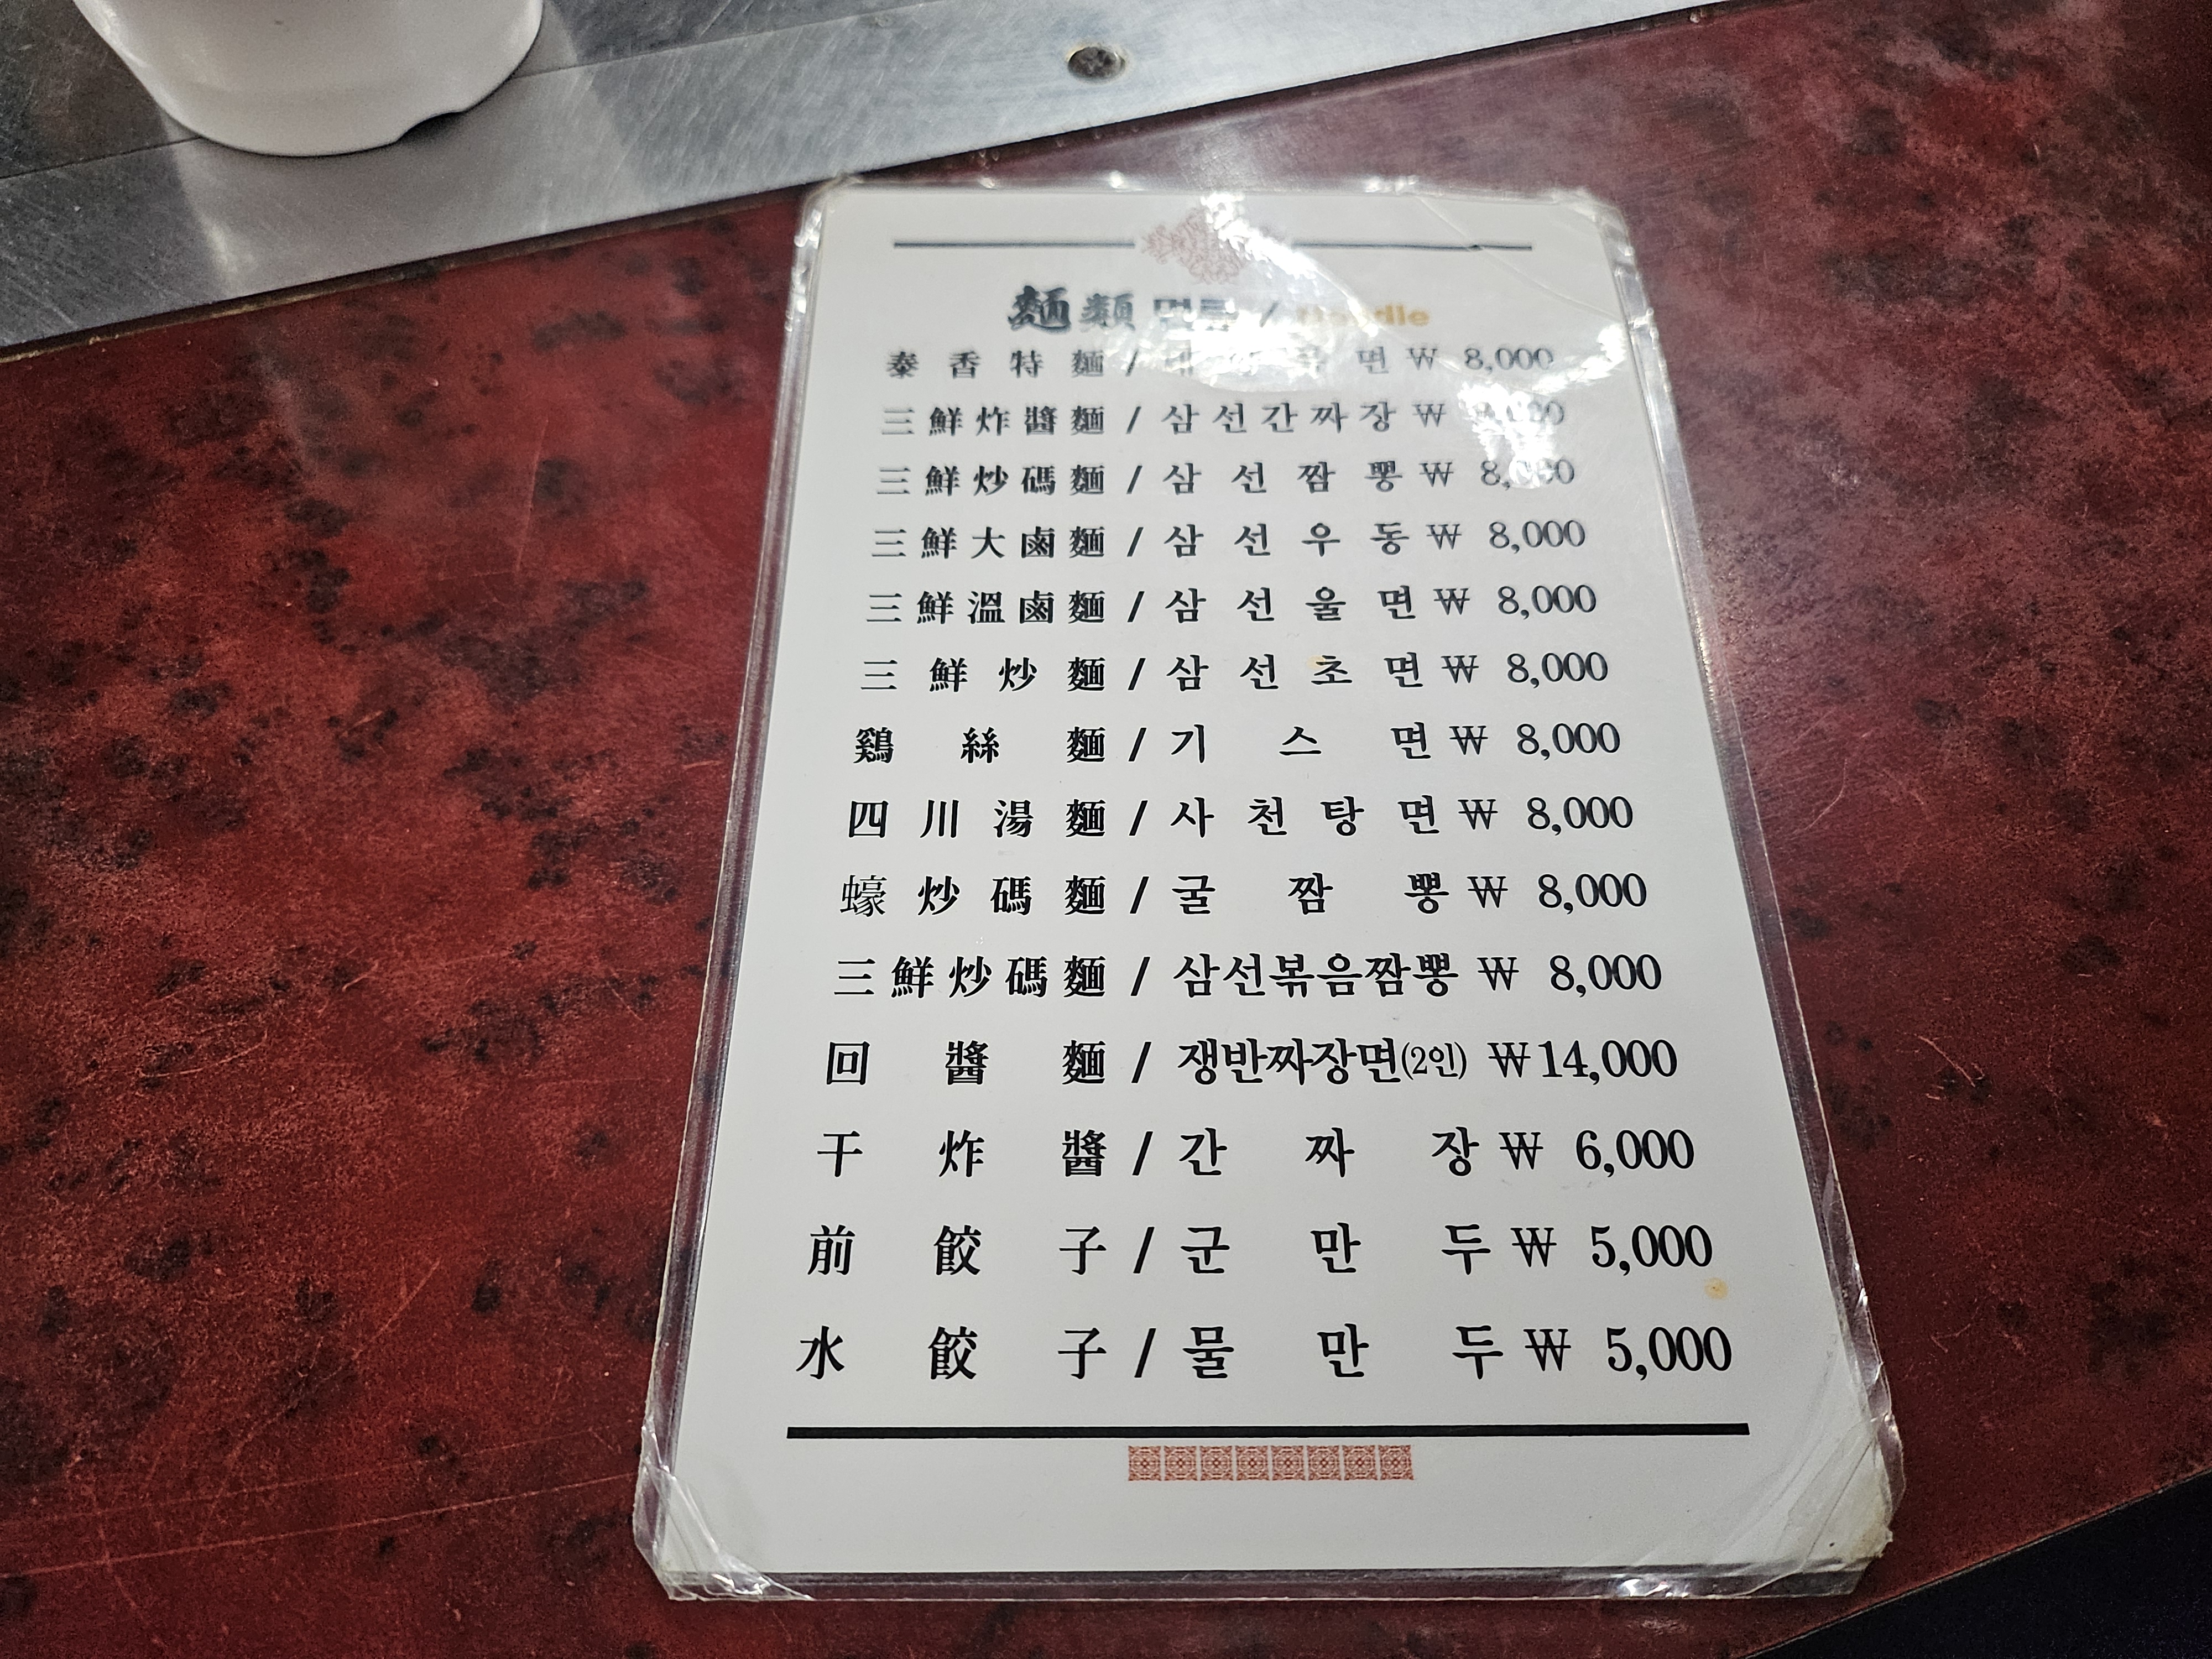 麵類 면류 / Noodle
泰香特麵 / 면 ₩ 8,000
三鮮炸醬麵 / 삼선간짜장 ₩
三鮮炒碼麵 / 삼선짬뽕 ₩ 8,000
三鮮大鹵麵 / 삼선우동 ₩ 8,000
三鮮溫鹵麵 / 삼선울면 ₩ 8,000
三鮮炒麵 / 삼선초면 ₩ 8,000
鷄絲麵 / 기스면 ₩ 8,000
四川湯麵 / 사천탕면 ₩ 8,000
蠔炒碼麵 / 굴짬뽕 ₩ 8,000
三鮮炒碼麵 / 삼선볶음짬뽕 ₩ 8,000
回醬麵 / 쟁반짜장면(2인) ₩14,000
干炸醬 / 간짜장 ₩ 6,000
前餃子 / 군만두 ₩ 5,000
水餃子 / 물만두 ₩ 5,000